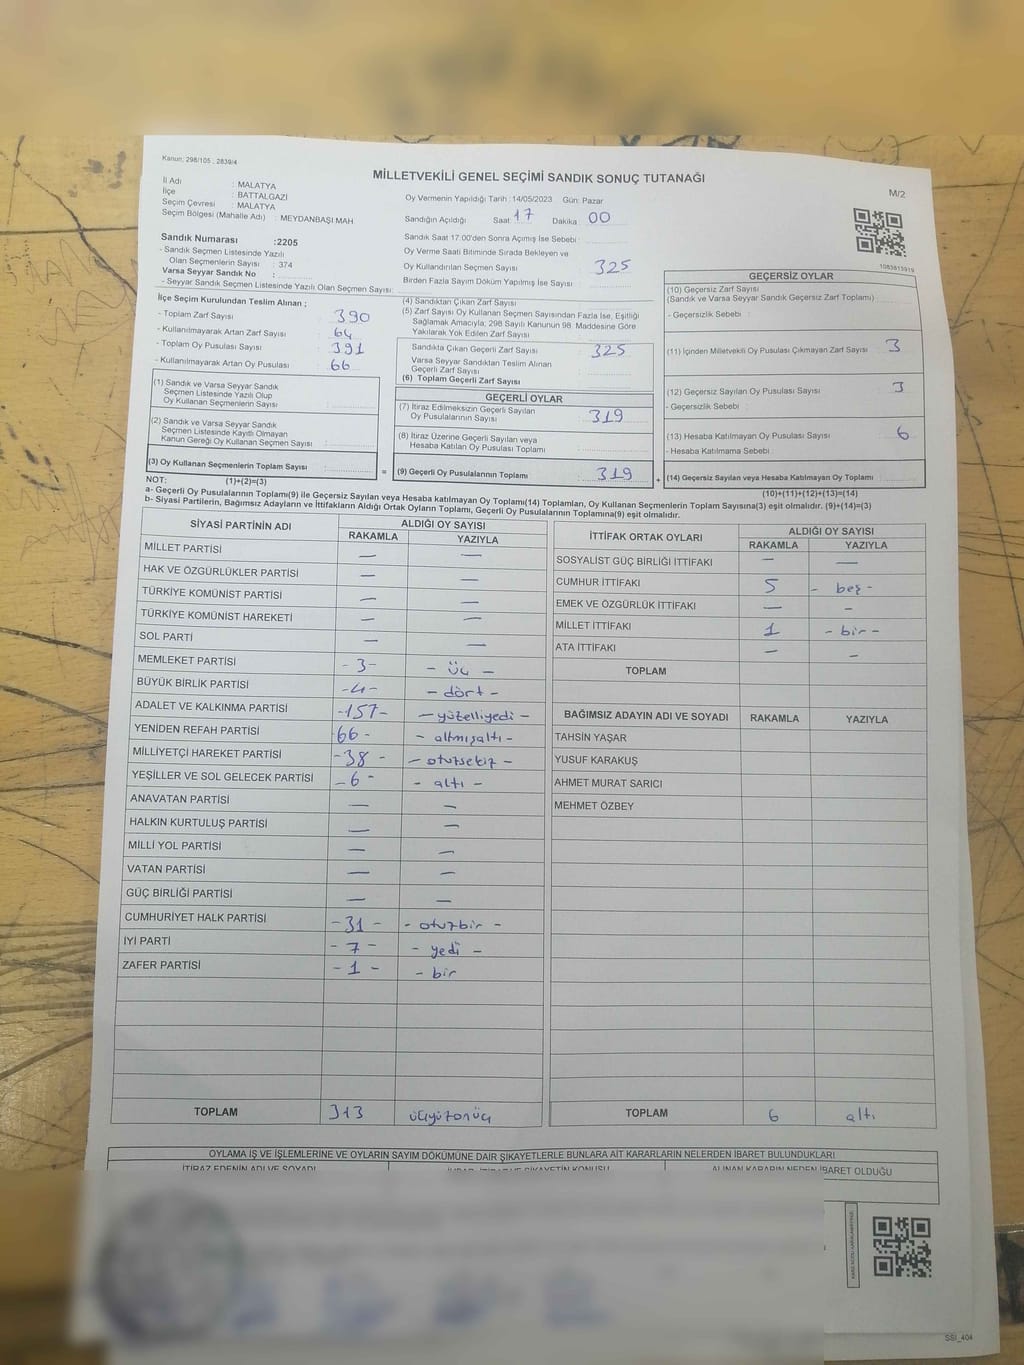 Kanun; 298/105 ; 2839/4
MİLLETVEKİLİ GENEL SEÇİMİ SANDIK SONUÇ TUTANAĞI
M/2
İl Adı : MALATYA
İlçe : BATTALGAZİ
Seçim Çevresi : MALATYA
Seçim Bölgesi (Mahalle Adı) : MEYDANBAŞI MAH
Oy Vermenin Yapıldığı Tarih : 14/05/2023 Gün: Pazar
Sandığın Açıldığı Saat 17 Dakika 00
Sandık Numarası :2205
- Sandık Seçmen Listesinde Yazılı
Olan Seçmenlerin Sayısı : 374
Varsa Seyyar Sandık No :
- Seyyar Sandık Seçmen Listesinde Yazılı Olan Seçmen Sayısı:
Sandık Saat 17.00'den Sonra Açımış İse Sebebi :
Oy Verme Saati Bitiminde Sırada Bekleyen ve
Oy Kullandırılan Seçmen Sayısı : 325
Birden Fazla Sayım Döküm Yapılmış İse Sayısı :
1083813919
İlçe Seçim Kurulundan Teslim Alınan ;
- Toplam Zarf Sayısı : 390
- Kullanılmayarak Artan Zarf Sayısı : 64
- Toplam Oy Pusulası Sayısı : 391
- Kullanılmayarak Artan Oy Pusulası : 66
(1) Sandık ve Varsa Seyyar Sandık
Seçmen Listesinde Yazılı Olup
Oy Kullanan Seçmenlerin Sayısı :
(2) Sandık ve Varsa Seyyar Sandık
Seçmen Listesinde Kayıtlı Olmayan
Kanun Gereği Oy Kullanan Seçmen Sayısı :
(3) Oy Kullanan Seçmenlerin Toplam Sayısı :
(4) Sandıktan Çıkan Zarf Sayısı
(5) Zarf Sayısı Oy Kullanan Seçmen Sayısından Fazla İse, Eşitliği
Sağlamak Amacıyla; 298 Sayılı Kanunun 98. Maddesine Göre
Yakılarak Yok Edilen Zarf Sayısı
Sandıkta Çıkan Geçerli Zarf Sayısı : 325
Varsa Seyyar Sandıktan Teslim Alınan
Geçerli Zarf Sayısı
(6) Toplam Geçerli Zarf Sayısı
GEÇERLİ OYLAR
(7) İtiraz Edilmeksizin Geçerli Sayılan
Oy Pusulalarının Sayısı : 319
(8) İtiraz Üzerine Geçerli Sayılan veya
Hesaba Katılan Oy Pusulası Toplamı
= (9) Geçerli Oy Pusulalarının Toplamı : 319 +
GEÇERSİZ OYLAR
(10) Geçersiz Zarf Sayısı
(Sandık ve Varsa Seyyar Sandık Geçersiz Zarf Toplamı) :
- Geçersizlik Sebebi :
(11) İçinden Milletvekili Oy Pusulası Çıkmayan Zarf Sayısı : 3
(12) Geçersiz Sayılan Oy Pusulası Sayısı : 3
- Geçersizlik Sebebi :
(13) Hesaba Katılmayan Oy Pusulası Sayısı : 6
- Hesaba Katılmama Sebebi :
(14) Geçersiz Sayılan veya Hesaba Katılmayan Oy Toplamı :
NOT: (1)+(2)=(3)
(10)+(11)+(12)+(13)=(14)
a- Geçerli Oy Pusulalarının Toplamı(9) ile Geçersiz Sayılan veya Hesaba katılmayan Oy Toplamı(14) Toplamları, Oy Kullanan Seçmenlerin Toplam Sayısına(3) eşit olmalıdır. (9)+(14)=(3)
b- Siyasi Partilerin, Bağımsız Adayların ve İttifakların Aldığı Ortak Oyların Toplamı, Geçerli Oy Pusulalarının Toplamına(9) eşit olmalıdır.
SİYASİ PARTİNİN ADI ALDIĞI OY SAYISI
RAKAMLA YAZIYLA
MİLLET PARTİSİ — —
HAK VE ÖZGÜRLÜKLER PARTİSİ — —
TÜRKİYE KOMÜNİST PARTİSİ — —
TÜRKİYE KOMÜNİST HAREKETİ — —
SOL PARTİ — —
MEMLEKET PARTİSİ -3- - üç -
BÜYÜK BİRLİK PARTİSİ -4- - dört -
ADALET VE KALKINMA PARTİSİ -157- - yüzelliyedi -
YENİDEN REFAH PARTİSİ 66- - altmışaltı -
MİLLİYETÇİ HAREKET PARTİSİ -38- - otuzsekiz -
YEŞİLLER VE SOL GELECEK PARTİSİ -6- - altı -
ANAVATAN PARTİSİ — —
HALKIN KURTULUŞ PARTİSİ — —
MİLLİ YOL PARTİSİ — —
VATAN PARTİSİ — —
GÜÇ BİRLİĞİ PARTİSİ — —
CUMHURİYET HALK PARTİSİ -31- - otuzbir -
İYİ PARTİ -7- - yedi -
ZAFER PARTİSİ -1- - bir
TOPLAM 313 üçyüzonüç
İTTİFAK ORTAK OYLARI ALDIĞI OY SAYISI
RAKAMLA YAZIYLA
SOSYALİST GÜÇ BİRLİĞİ İTTİFAKI — —
CUMHUR İTTİFAKI 5 - beş -
EMEK VE ÖZGÜRLÜK İTTİFAKI — -
MİLLET İTTİFAKI 1 - bir -
ATA İTTİFAKI — -
TOPLAM
BAĞIMSIZ ADAYIN ADI VE SOYADI RAKAMLA YAZIYLA
TAHSİN YAŞAR
YUSUF KARAKUŞ
AHMET MURAT SARICI
MEHMET ÖZBEY
TOPLAM 6 altı
OYLAMA İŞ VE İŞLEMLERİNE VE OYLARIN SAYIM DÖKÜMÜNE DAİR ŞİKAYETLERLE BUNLARA AİT KARARLARIN NELERDEN İBARET BULUNDUKLARI
İTİRAZ EDENİN ADI VE SOYADI
ALINAN KARARIN NEDEN İBARET OLDUĞU
SSİ_404